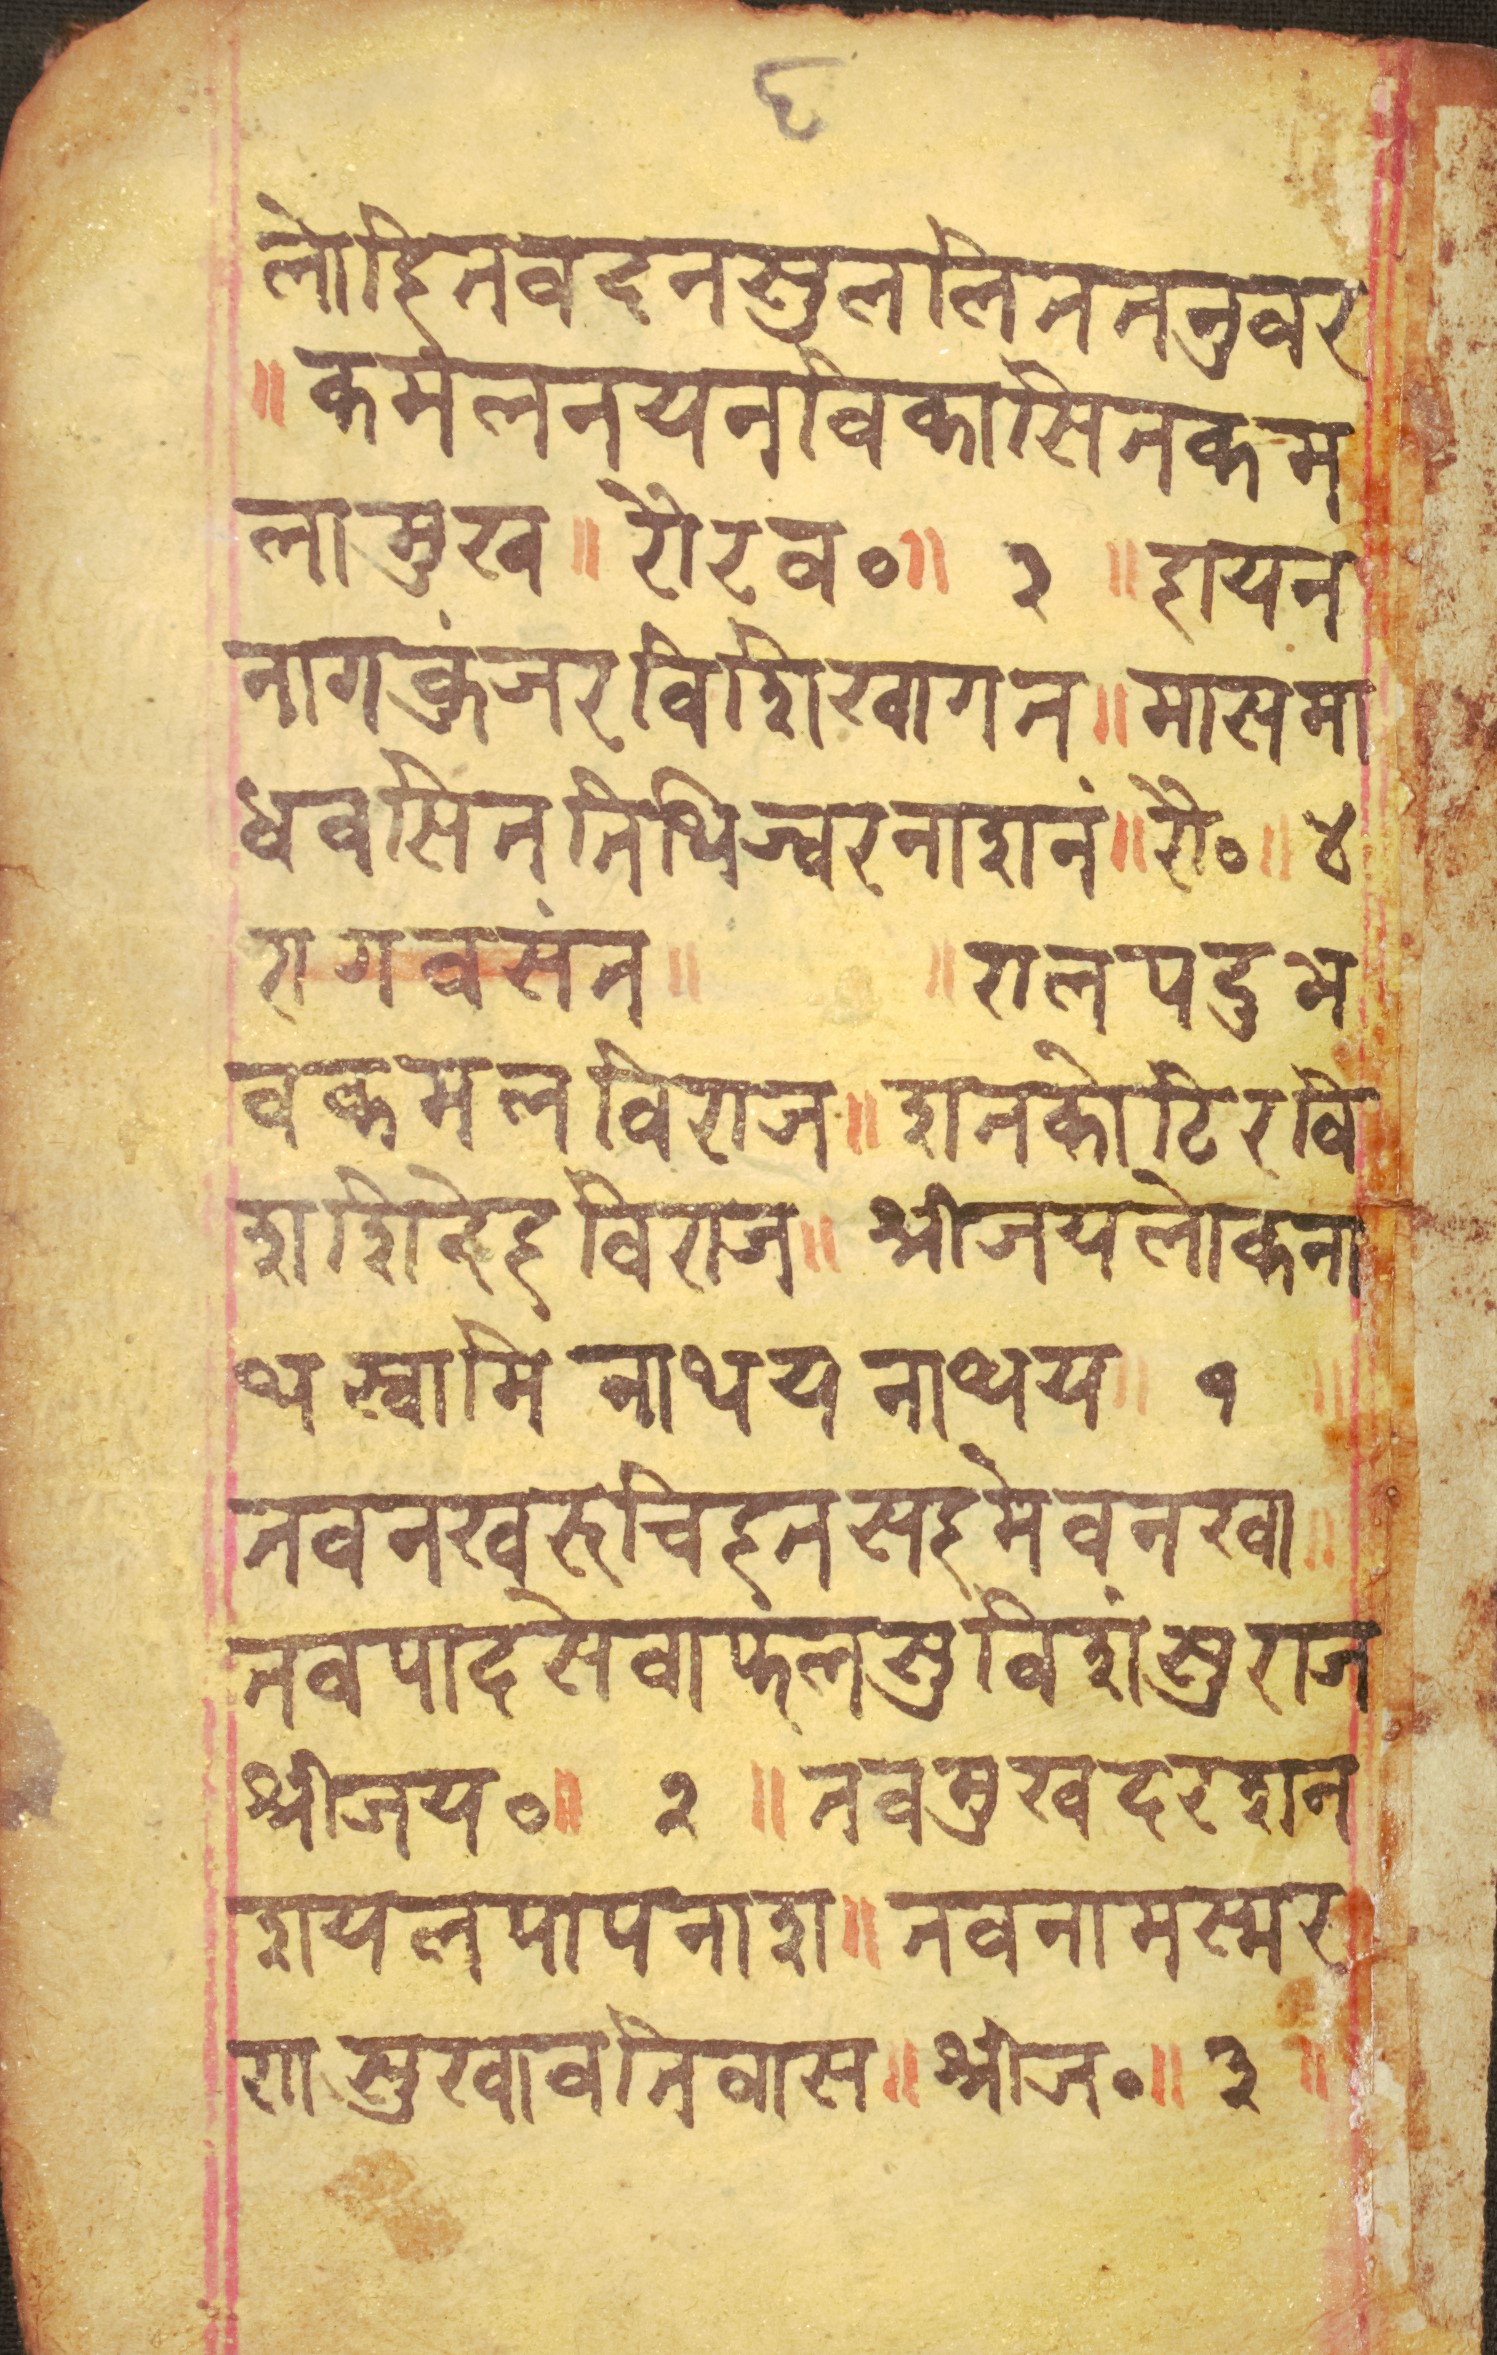 ६
लोहितवदनसुललिततनुवर
॥ कमलनयनविकासितकम
लामुख ॥ रौरव० ॥ ३ ॥ हायन
नागकुंजरविशिखागत ॥ मासमा
धवसिततिथिज्वरनाशनं ॥ रौ० ॥ ४
रागवसंत ॥ ॥ तालपदुम
वकमलविराज ॥ शतकोटिरवि
शशिदेहविराज ॥ श्रीजयलोकना
थस्वामि नाथय नाथय ॥ १ ॥
तवनखरुचिहतसहमेवनखा ॥
तवपादसेवाफंलसुविशंसुराज
श्रीजय० ॥ २ ॥ तवमुखदरशन
शयलपापनाश ॥ तवनामस्मर
णासुखावनिवास ॥ श्रीज० ॥ ३ ॥